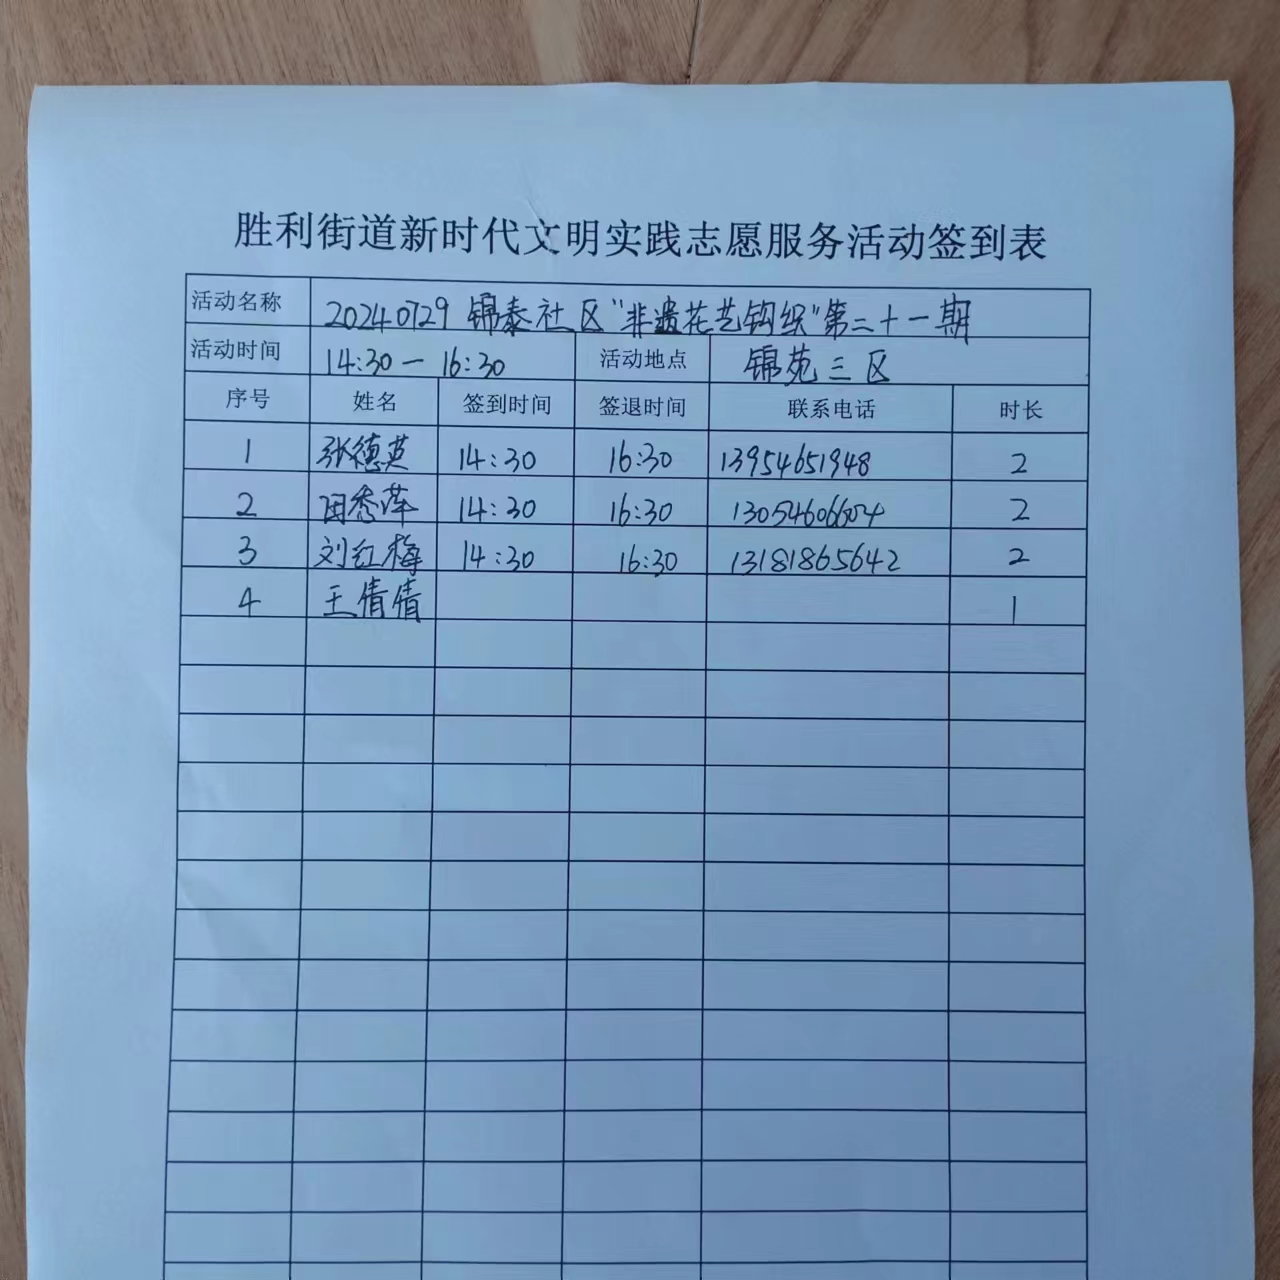 胜利街道新时代文明实践志愿服务活动签到表
活动名称 20240729 锦泰社区"非遗花艺钩织"第二十一期
活动时间 14:30 — 16:30 活动地点 锦苑三区
序号 姓名 签到时间 签退时间 联系电话 时长
1 张德英 14:30 16:30 13954651948 2
2 田秀萍 14:30 16:30 2
3 刘红梅 14:30 16:30 13181865642 2
4 王倩倩 1